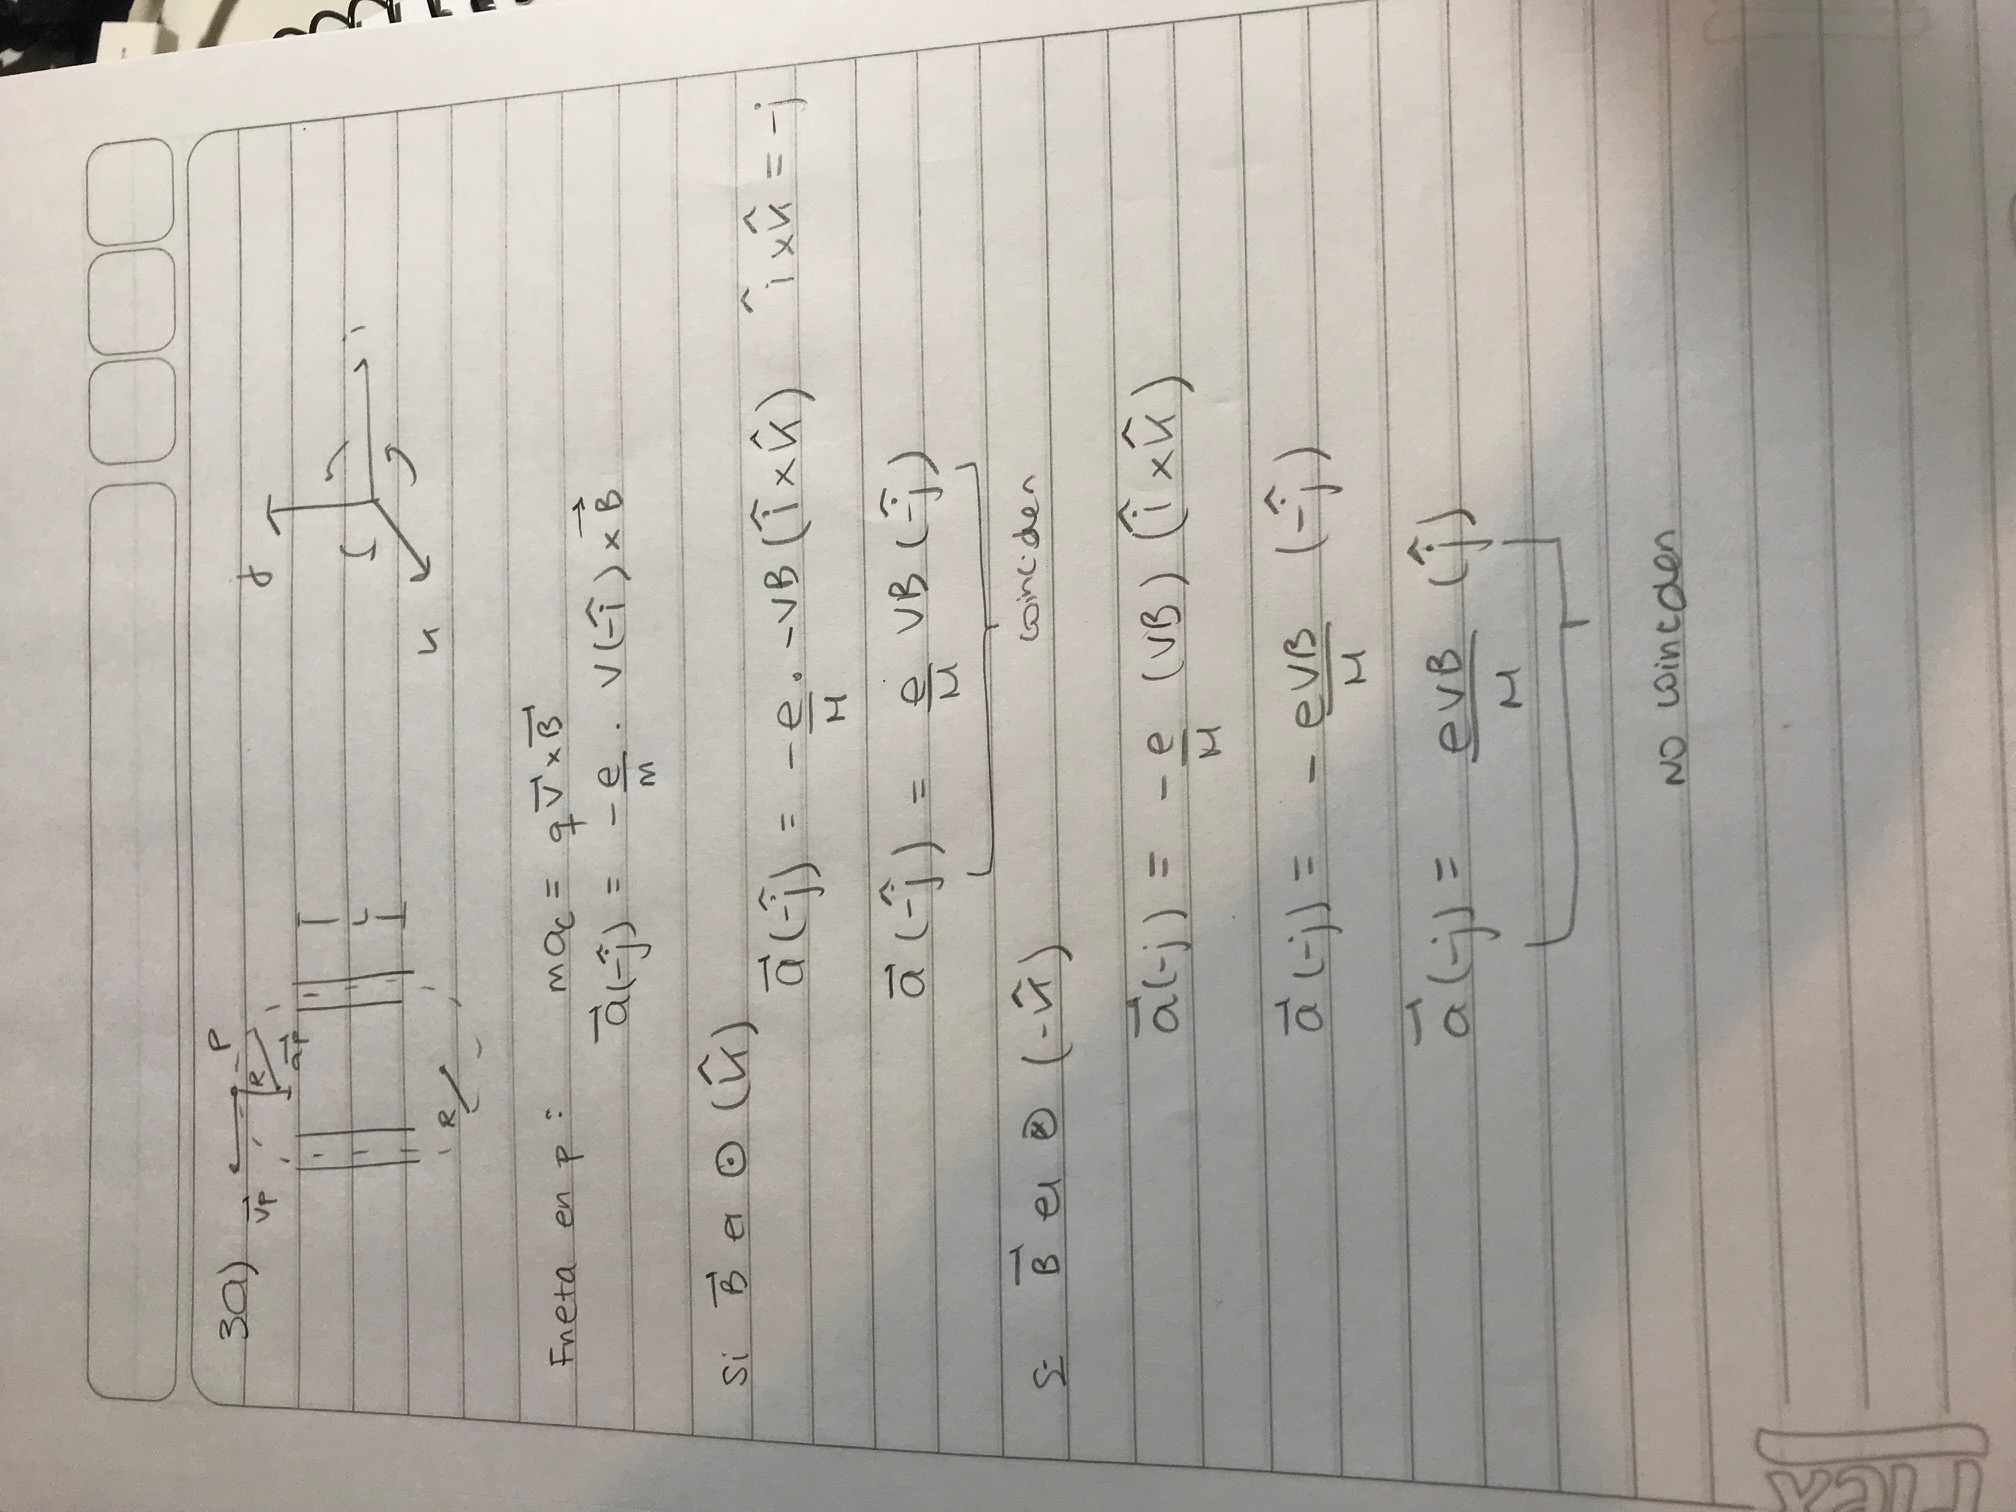 3a)
P
R
→vp
→ap
L
R
j
i
k
Fneta en p : mac = q→V×→B
→a(-ĵ) = -e/m · V(-î)×→B
Si →B es ⊙ (k̂)
→a(-ĵ) = -e/M · -VB(î×k̂) î×k̂ = -j
→a(-ĵ) = e/M VB(-ĵ)
coinciden
Si →B es ⊗ (-k̂)
→a(-j) = -e/M (VB) (î×k̂)
→a(-j) = -eVB/M (-ĵ)
→a(-j) = eVB/M (ĵ)
NO coinciden